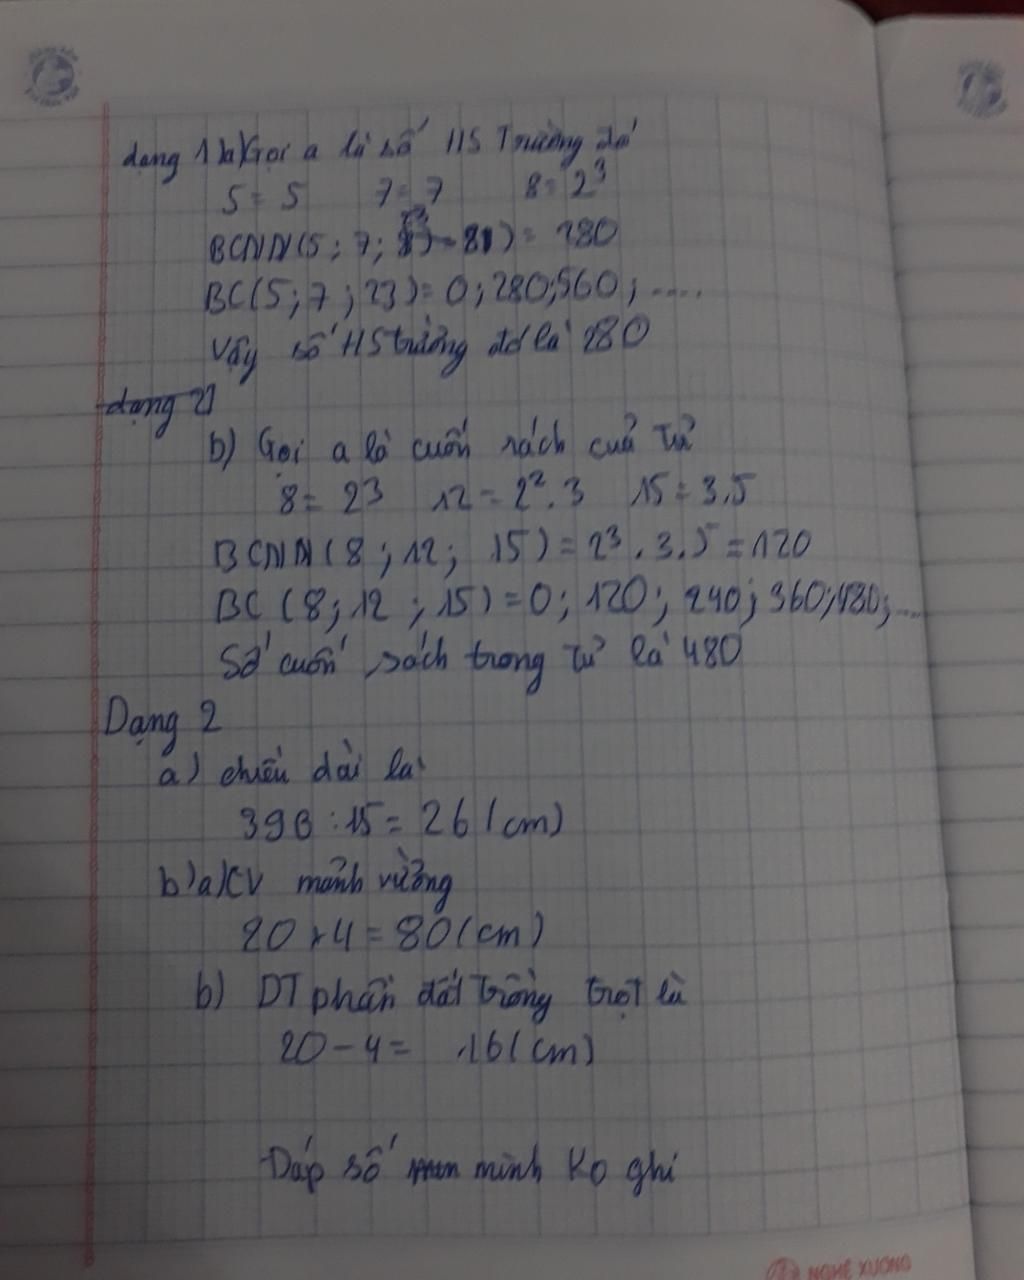 dạng 1 a) Gọi a là số HS Trường đó
5 = 5 7 = 7 8 = 2³
BCNN(5; 7; 8) = 280
BC(5; 7; 23) = 0; 280; 560; ....
Vậy số HS trường đó là 280
dạng 2)
b) Gọi a là cuốn sách cuả Tủ
8 = 23 12 = 2². 3 15 = 3.5
BCNN(8; 12; 15) = 2³. 3. 5 = 120
BC (8; 12; 15) = 0; 120; 240; 360; 480; ....
Số cuốn sách trong Tủ là 480
Dạng 2
a) chiều dài là
390 : 15 = 26 (cm)
b) a) CV mảnh vườn
20 x 4 = 80 (cm)
b) DT phần đất Trồng trọt là
20 - 4 = 16 (cm)
Đáp số mình Ko ghi
NGHÊ XUONG